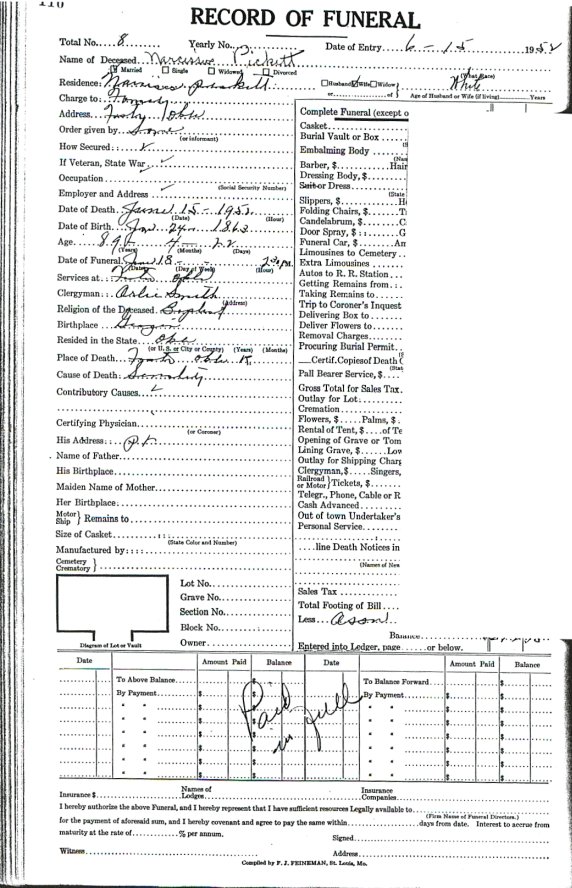 110
RECORD OF FUNERAL
Total No. 8 Yearly No. Date of Entry 6-15 1952
Name of Deceased Narcissus Pickett
Married Single Widowed Divorced
(What Race)
Residence: Pickett Husband Wife Widow White
or of Age of Husband or Wife (if living) Years
Charge to: Family
Address
Order given by Son
(or informant)
How Secured:
If Veteran, State War
Occupation
(Social Security Number)
Employer and Address
Date of Death June 15-1952
(Date) (Hour)
Date of Birth Jan. 24 1863
Age 89 4 22
(Years) (Months) (Days)
Date of Funeral June 18 2:30 PM
(Date) (Day of Week) (Hour)
Services at
Clergyman: Arlie Smith
(Address)
Religion of the Deceased Baptist
Birthplace
Resided in the State Okla
(or U. S. or City or County) (Years) (Months)
Place of Death Okla
Cause of Death:
Contributory Causes
Certifying Physician
(or Coroner)
His Address:
Name of Father
His Birthplace
Maiden Name of Mother
Her Birthplace
Motor Ship } Remains to
Size of Casket
(State Color and Number)
Manufactured by
Cemetery Crematory }
Complete Funeral (except o
Casket
Burial Vault or Box
Embalming Body
(Nam
Barber, $ Hair
Dressing Body, $
Suit or Dress
(State
Slippers, $ H
Folding Chairs, $ T
Candelabrum, $ C
Door Spray, $ G
Funeral Car, $ Am
Limousines to Cemetery
Extra Limousines
Autos to R. R. Station
Getting Remains from
Taking Remains to
Trip to Coroner's Inquest
Delivering Box to
Deliver Flowers to
Removal Charges
Procuring Burial Permit
Certif. Copies of Death C
(Stat
Pall Bearer Service, $
Gross Total for Sales Tax
Outlay for Lot:
Cremation
Flowers, $ Palms, $
Rental of Tent, $ of Te
Opening of Grave or Tom
Lining Grave, $ Low
Outlay for Shipping Charg
Clergyman, $ Singers,
Railroad or Motor } Tickets, $
Telegr., Phone, Cable or R
Cash Advanced
Out of town Undertaker's
Personal Service
line Death Notices in
(Names of New
Sales Tax
Total Footing of Bill
Less
Balance
Entered into Ledger, page or below.
Lot No.
Grave No.
Section No.
Block No.
Owner
Diagram of Lot or Vault
Date Amount Paid Balance Date Amount Paid Balance
To Above Balance To Balance Forward
By Payment By Payment
Paid in full
Insurance $ Names of Lodges Insurance Companies
I hereby authorize the above Funeral, and I hereby represent that I have sufficient resources Legally available to
(Firm Name of Funeral Directors.)
for the payment of aforesaid sum, and I hereby covenant and agree to pay the same within days from date. Interest to accrue from
maturity at the rate of % per annum.
Signed
Witness Address
Compiled by F. J. FEINEMAN, St. Louis, Mo.